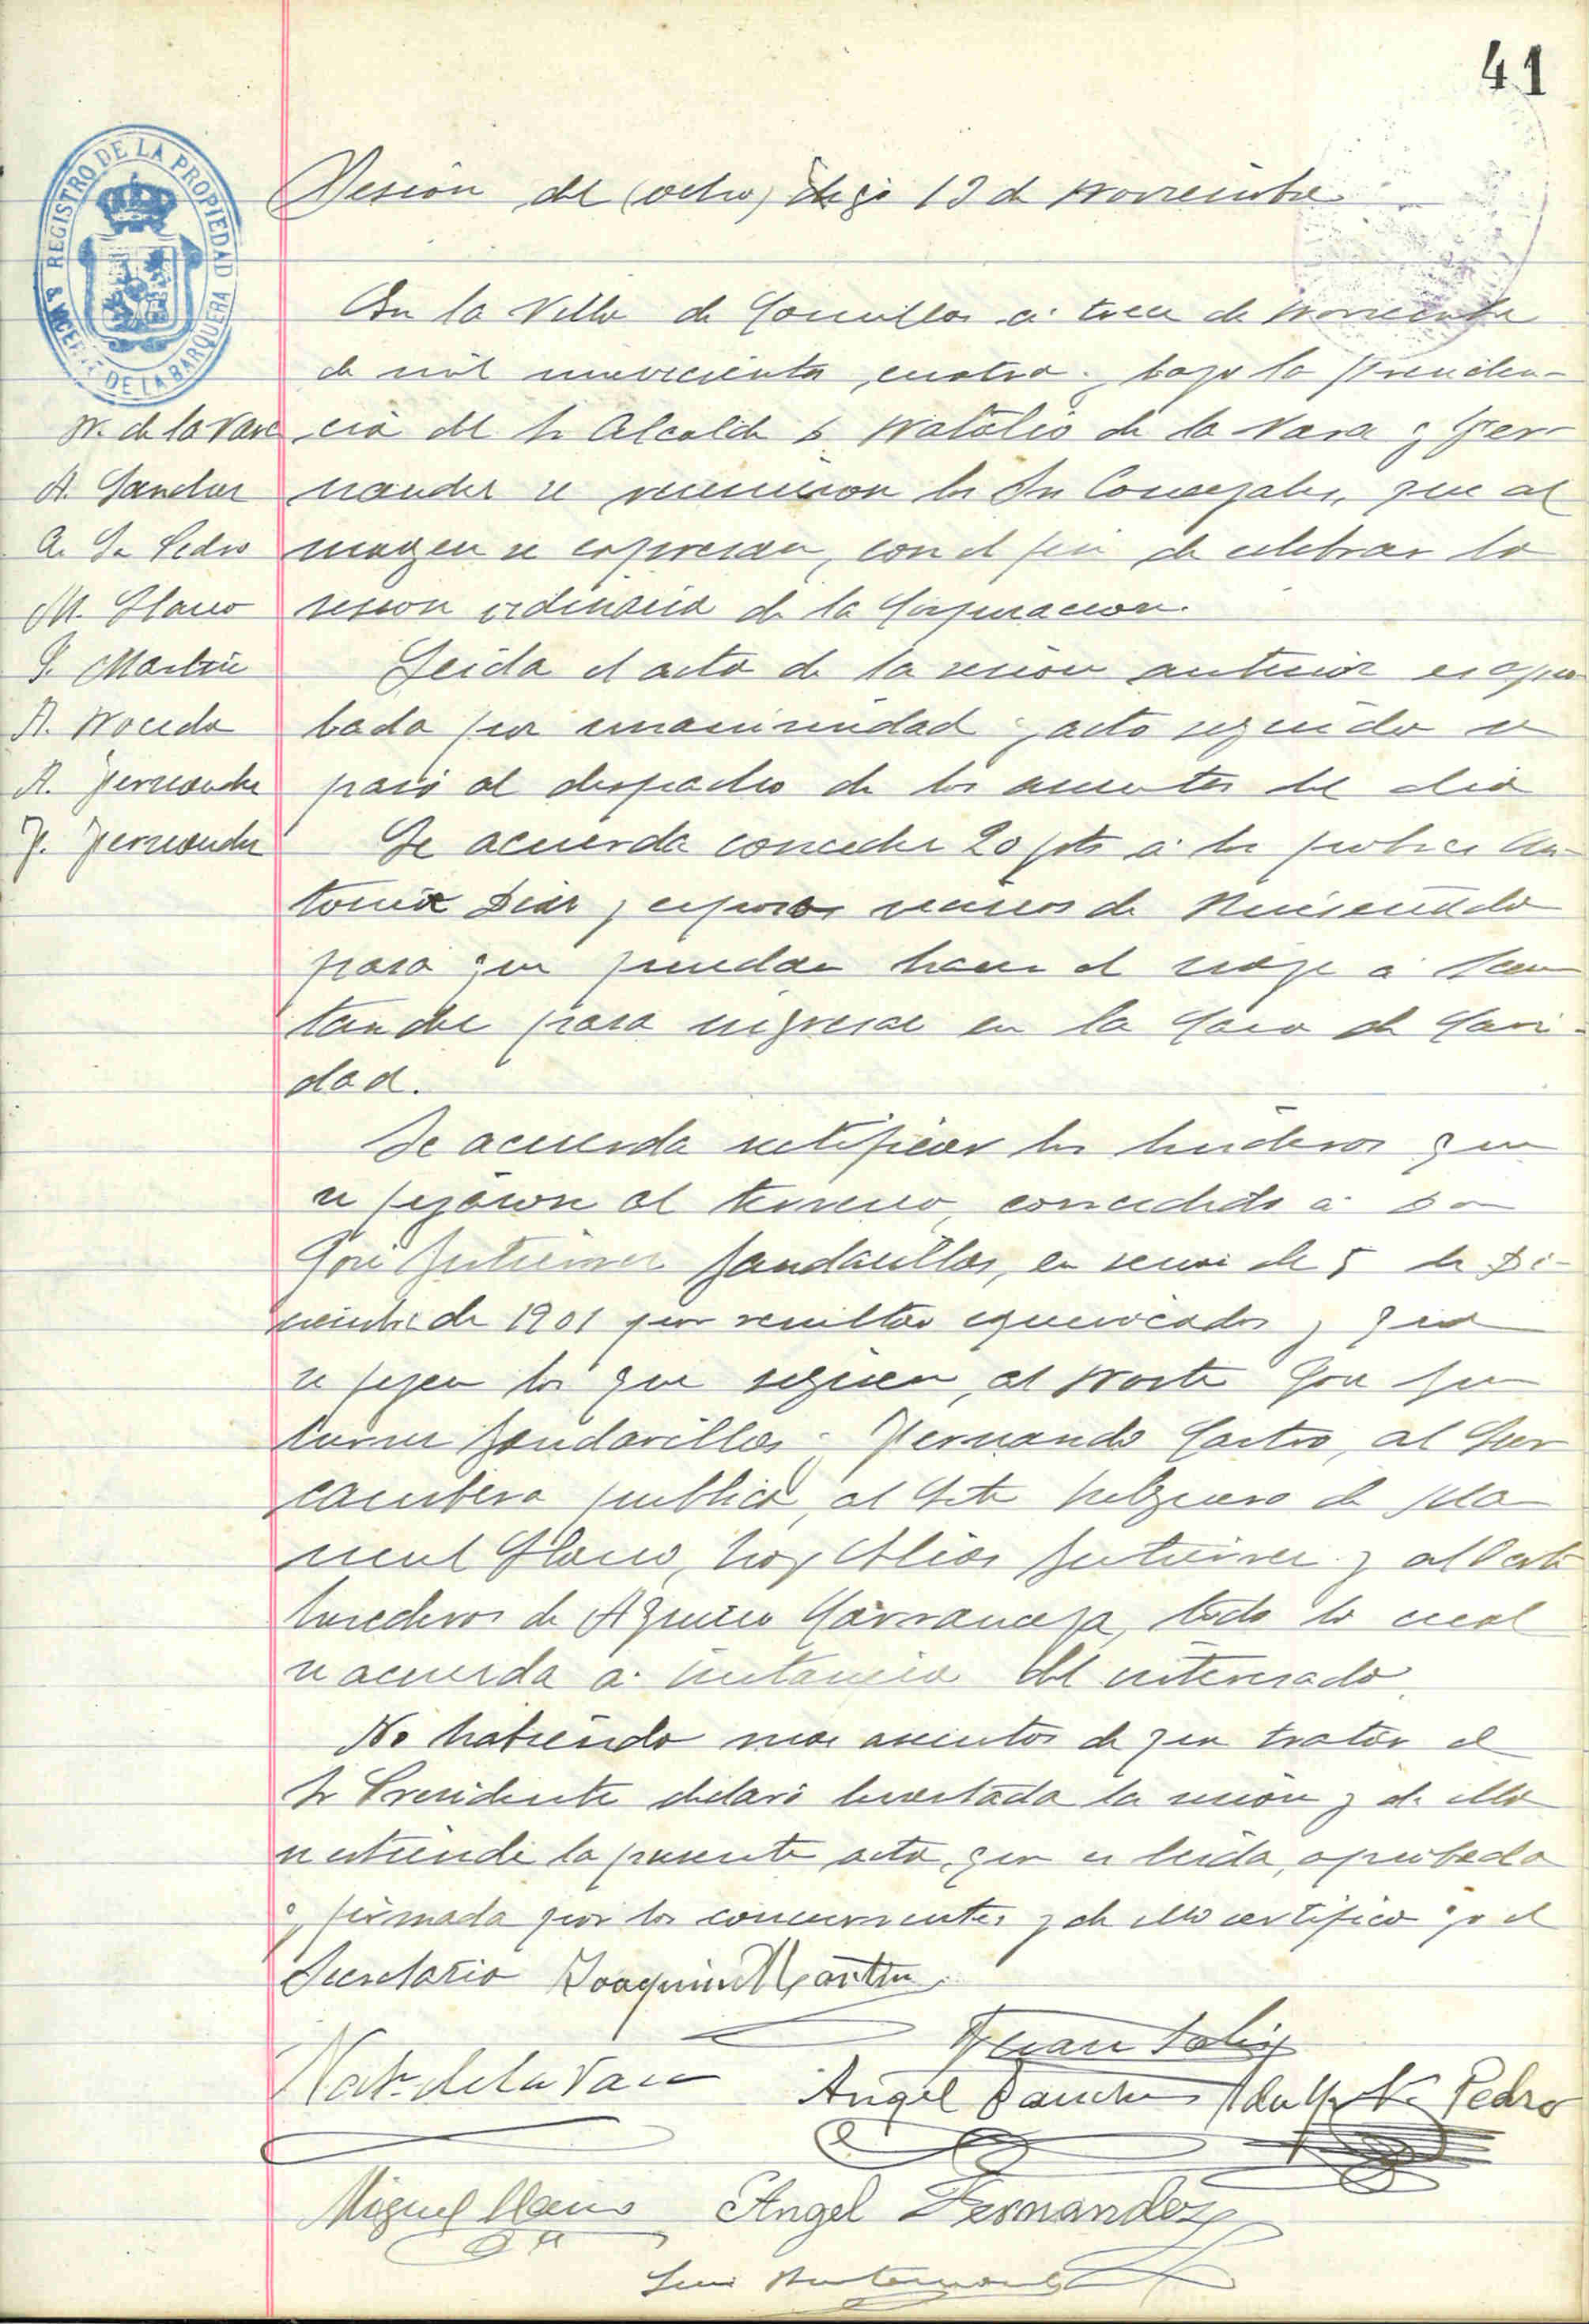 41
REGISTRO DE LA PROPIEDAD
S. VICENTE DE LA BARQUERA
Sesión del (ocho) digo 13 de Noviembre
En la Villa de Comillas á trece de Noviembre
de mil novecientos cuatro, bajo la presiden-
N. de la Vara
cia del Sr Alcalde D. Natalio de la Vara y Fer-
A. Sanchez
nandez se reunieron los Srs Concejales, que al
A. Sn Pedro
margen se expresan, con el fin de celebrar la
M. Llano
sesion ordinaria de la Corporacion.
J. Martin
Leida el acta de la sesion anterior es apro
A. Noceda
bada por unanimidad y acto seguido se
A. Fernandez
pasó al despacho de los asuntos del dia
F. Fernandez
Se acuerda conceder 20 pts á los pobres An-
tonia Diaz y esposo vecinos de Ruiseñada
para que puedan hacer el viaje á San
tander para ingresar en la Casa de Cari-
dad.
Se acuerda rectificar los linderos que
se fijaron al terreno, concedido á Dn
José Gutierrez Gandarillas, en sesion de 5 de Di-
ciembre de 1901 por resultar equivocados y que
se fijen los que siguen, al Norte José Gu
tierrez Gandarillas y Fernando Castro, al Sur
cambera publica, al Este helguero de Ma
nuel Llano, hoy Elias Gutierrez y al Oeste
herederos de Carranceja, todo lo cual
se acuerda á instancia del interesado.
No habiendo mas asuntos de que tratar el
Sr Presidente declaró levantada la sesión y de ello
se estiende la presente acta, que es leida, aprobada
y firmada por los concurrentes y de ello certifico yo el
Secretario Joaquin Martin
Juan
Nat. de la Vara
Angel Sanchez Adolfo Sn Pedro
Miguel Llano Angel Fernandez